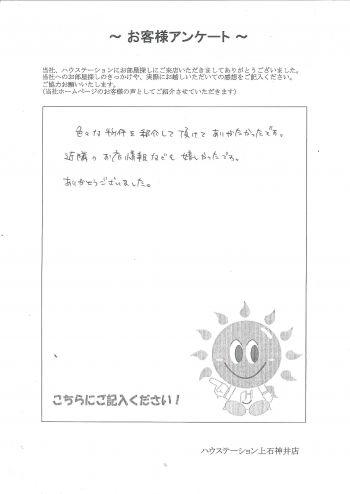 ～ お客様アンケート ～
当社、ハウステーションにお部屋探しにご来店いただきましてありがとうございました。
当社へのお部屋探しのきっかけや、実際にお越しいただいての感想をご記入ください。
ご協力お願いいたします。
(当社ホームページのお客様の声としてご紹介させていただきます)
色々な物件を紹介して頂けてありがたかったです。
近隣のお店情報なども嬉しかったです。
ありがとうございました。
こちらにご記入ください！
ハウステーション上石神井店